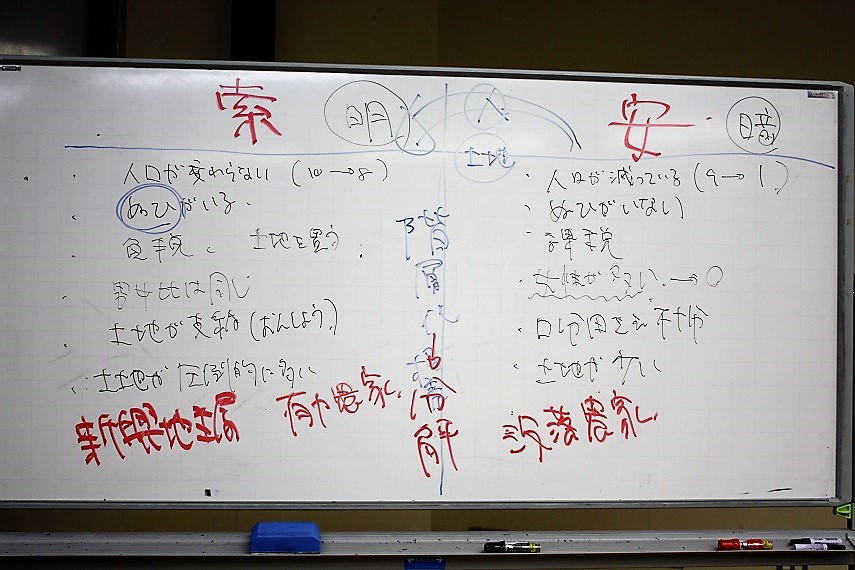 索 明
人 安 暗
土地
・人口が変わらない (10→8)
・ぬひがいる。
・土地を買う
・男女比は同じ
・土地が
・土地が圧倒的に多い
新興地主層 有力農家
階層
分解
・人口が減っている (9→1)
・ぬひがいない
・課税
・女性が多い →〇
・口分田も不十分
・土地が少い
没落農家